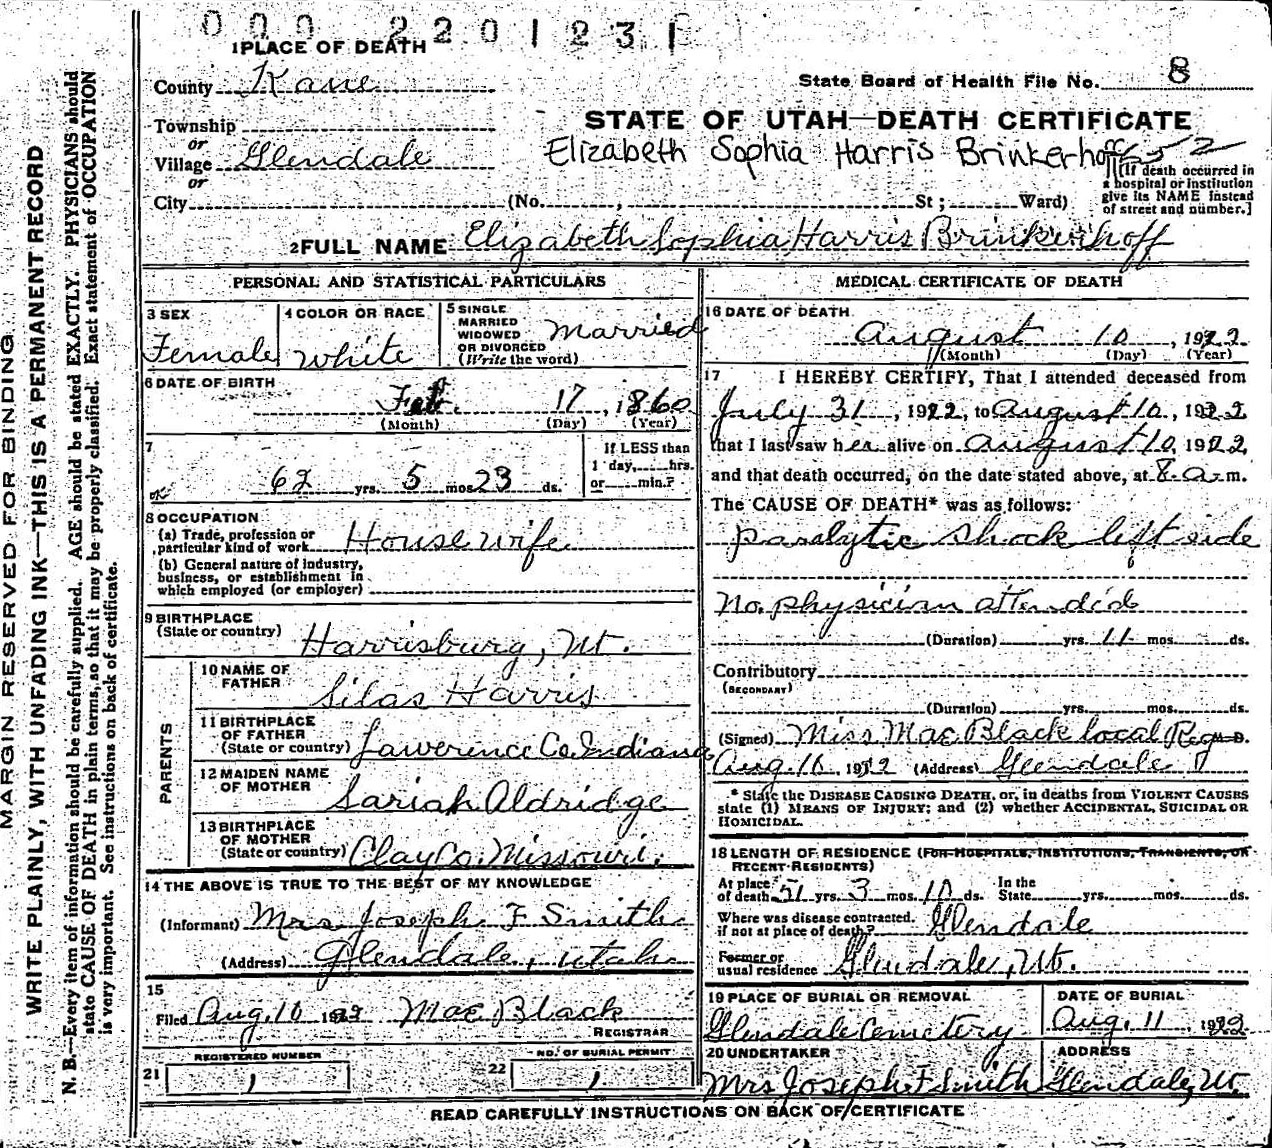 000 2201231
1 PLACE OF DEATH
County Kane
State Board of Health File No. 8
Township
or
Village Glendale
or
City (No. , St ; Ward)
STATE OF UTAH—DEATH CERTIFICATE
Elizabeth Sophia Harris Brinkerhoff
[If death occurred in
a hospital or institution
give its NAME instead
of street and number.]
2 FULL NAME Elizabeth Sophia Harris Brinkerhoff
PERSONAL AND STATISTICAL PARTICULARS
3 SEX
Female
4 COLOR OR RACE
White
5 SINGLE
MARRIED
WIDOWED
OR DIVORCED
(Write the word)
Married
6 DATE OF BIRTH
Feb. 17, 1860
(Month) (Day) (Year)
7
62 yrs. 5 mos 23 ds.
If LESS than
1 day, hrs.
or min.?
8 OCCUPATION
(a) Trade, profession or
particular kind of work Housewife
(b) General nature of industry,
business, or establishment in
which employed (or employer)
9 BIRTHPLACE
(State or country) Harrisburg, Ut.
PARENTS
10 NAME OF
FATHER
Silas Harris
11 BIRTHPLACE
OF FATHER
(State or country) Lawerence Co. Indiana
12 MAIDEN NAME
OF MOTHER
Sariah Aldridge
13 BIRTHPLACE
OF MOTHER
(State or country) Clay Co. Missouri.
14 THE ABOVE IS TRUE TO THE BEST OF MY KNOWLEDGE
(Informant) Mrs Joseph F Smith
(Address) Glendale, Utah
15
Filed Aug. 10 1922 Mae Black
REGISTRAR
21 REGISTERED NUMBER
1
22 NO. OF BURIAL PERMIT
1
MEDICAL CERTIFICATE OF DEATH
16 DATE OF DEATH
August 10, 1922
(Month) (Day) (Year)
17 I HEREBY CERTIFY, That I attended deceased from
July 31, 1922, to August 10, 1922
that I last saw her alive on August 10, 1922,
and that death occurred, on the date stated above, at 8 a. m.
The CAUSE OF DEATH* was as follows:
Paralytic shock left side
No. physician attended
(Duration) yrs. 11 mos. ds.
Contributory
(SECONDARY)
(Duration) yrs. mos. ds.
(Signed) Miss Mae Black local Reg
Aug. 10 1922 (Address) Glendale
* State the DISEASE CAUSING DEATH, or, in deaths from VIOLENT CAUSES
state (1) MEANS OF INJURY; and (2) whether ACCIDENTAL, SUICIDAL OR
HOMICIDAL.
18 LENGTH OF RESIDENCE (FOR HOSPITALS, INSTITUTIONS, TRANSIENTS, OR
RECENT RESIDENTS)
At place of death 51 yrs. 3 mos. 10 ds. In the State yrs. mos. ds.
Where was disease contracted,
if not at place of death? Glendale
Former or
usual residence Glendale, Ut.
19 PLACE OF BURIAL OR REMOVAL
Glendale Cemetery
DATE OF BURIAL
Aug. 11, 1922
20 UNDERTAKER
Mrs Joseph F Smith
ADDRESS
Glendale, Ut.
READ CAREFULLY INSTRUCTIONS ON BACK OF CERTIFICATE
MARGIN RESERVED FOR BINDING
WRITE PLAINLY, WITH UNFADING INK—THIS IS A PERMANENT RECORD
N. B.—Every item of information should be carefully supplied. AGE should be stated EXACTLY. PHYSICIANS should
state CAUSE OF DEATH in plain terms, so that it may be properly classified. Exact statement of OCCUPATION
is very important. See instructions on back of certificate.